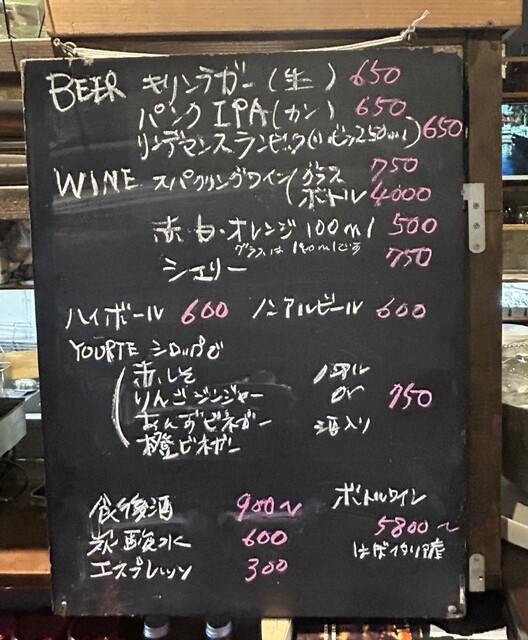 BEER キリンラガー(生) 650
パンクIPA(カン) 650
リンデマンスランビック(ハーピン250ml) 650
WINE スパークリングワイン(グラス 750
ボトル 4000
赤・白・オレンジ 100ml 500
グラスは
シェリー 750
ハイボール 600 ノンアルビール 600
YOURTE シロップで
赤しそ ノンアル
りんごジンジャー or 750
あんずビネガー 酒入り
橙ビネガー
食後酒 900〜 ボトルワイン
炭酸水 600 5800〜
エスプレッソ 300